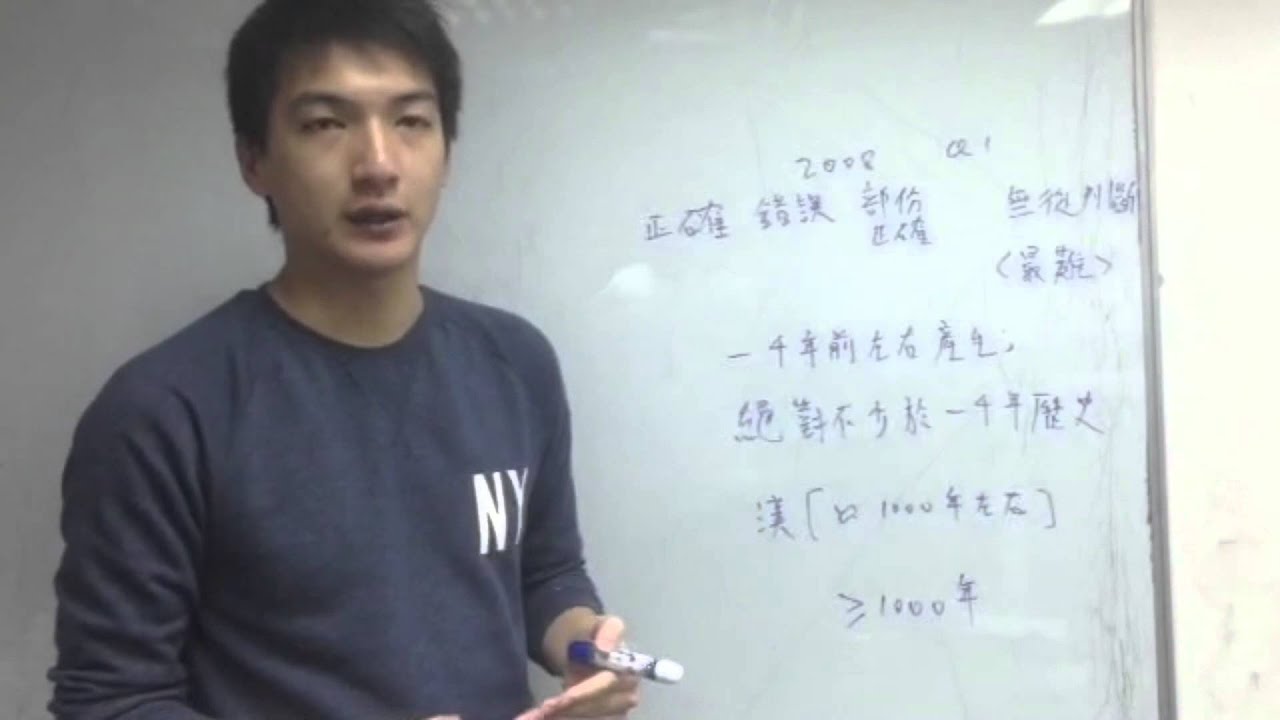 2008 Q1
正確 錯誤 部份 無從判斷
正確
<最難>
一千年前左右產生，
絕對不少於一千年歷史
漢［ 1000年左右］
≥1000年
NY